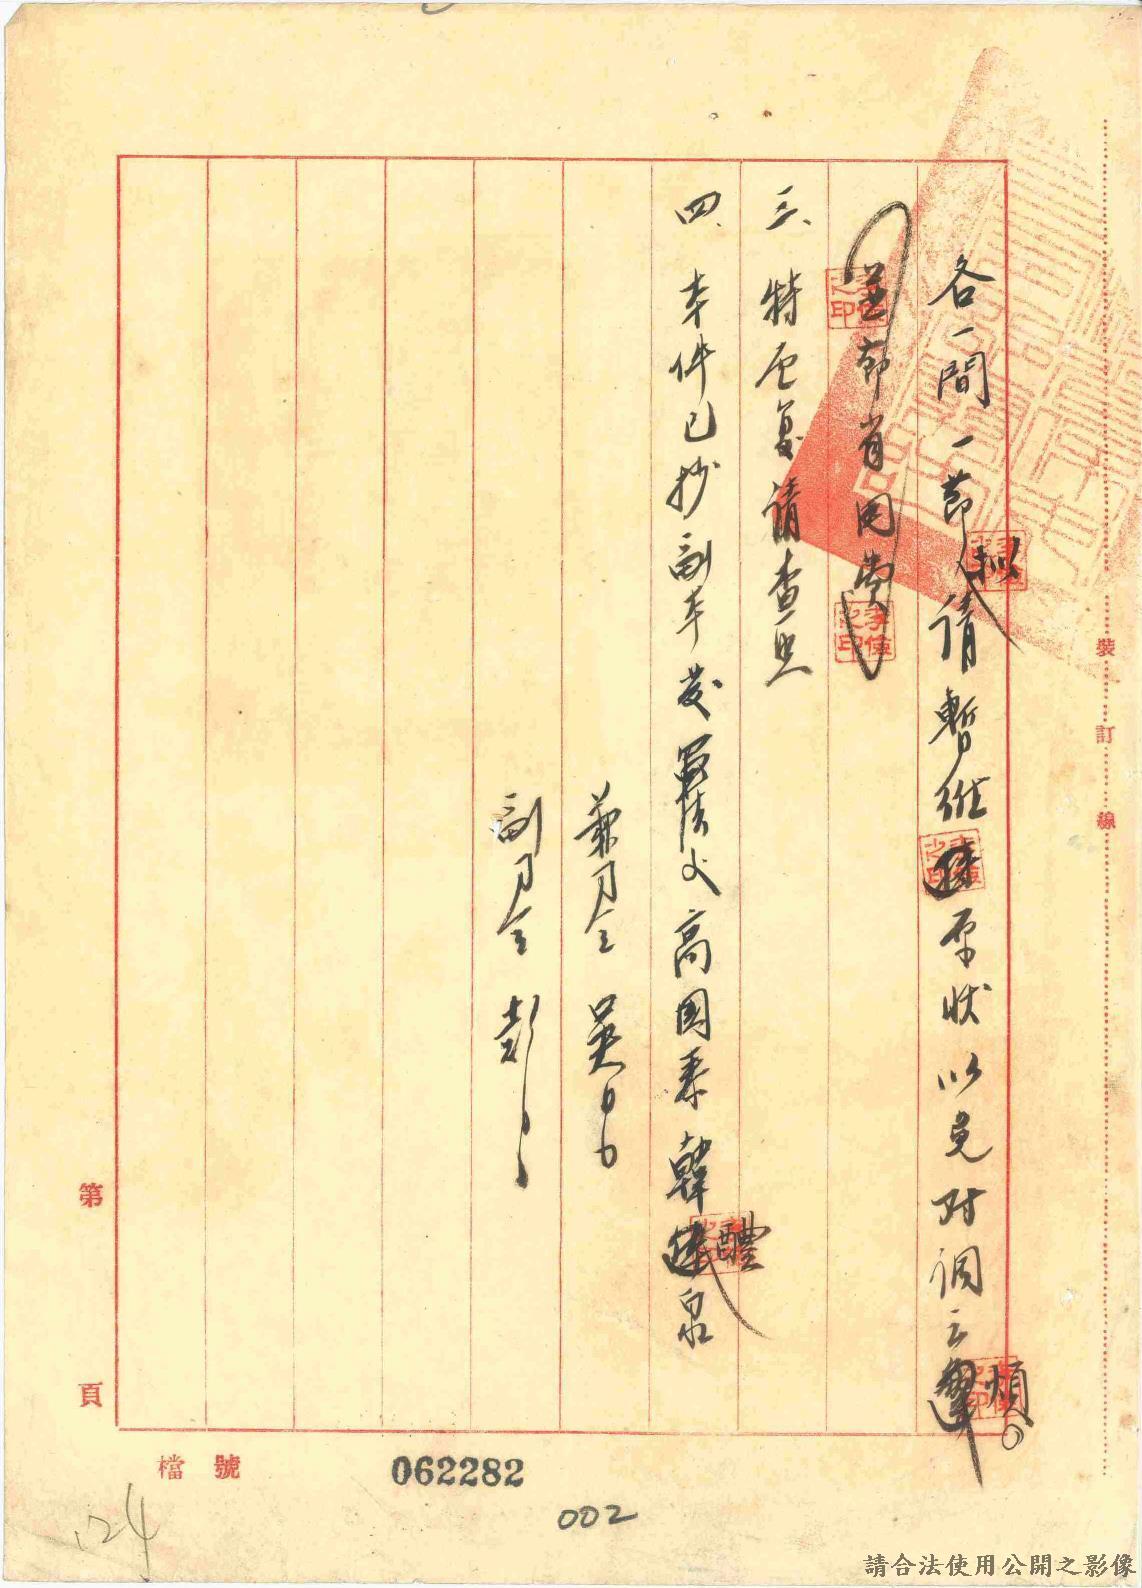 各一間一節擬請暫維原狀以免對調之煩。
並節省國帑
三、特电复請查照
四、本件已抄副本发最法父高國秉韓醴泉
兼司令 吳
副司令 彭
裝訂線
第 頁
檔號
062282
002
124
請合法使用公開之影像